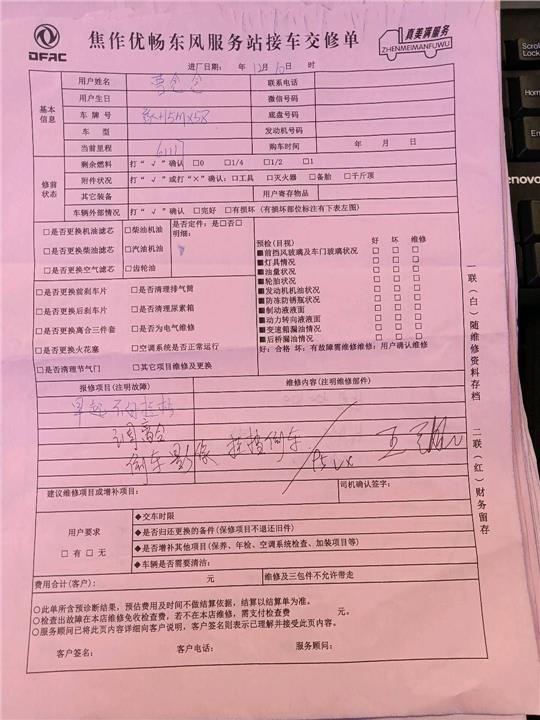 DFAC
焦作优畅东风服务站接车交修单
真美满服务
ZHENMEIMANFUWU
进厂日期： 年 12月 日 时
基本信息
用户姓名 联系电话
用户生日 微信号码
车牌号 底盘号码
车 型 发动机号码
当前里程 购车时间 年 月 日
修前状态
剩余燃料 打“√”确认 □0 □1/4 □1/2 □1
附件状况 打“√”或打“×”确认：□工具 □灭火器 □备胎 □千斤顶
其它装备 用户寄存物品
车辆外部情况 打“√”确认 □完好 □有损坏（有损坏部位标注有下表左图）
□是否更换机油滤芯 □柴油机油 是否定件：是□否□
明细：
□是否更换柴油滤芯 □汽油机油
□是否更换空气滤芯 □齿轮油
□是否更换前刹车片 □是否清理排气筒
□是否更换后刹车片 □是否清理尿素箱
□是否更换离合三件套 □是否为电气维修
□是否更换火花塞 □空调系统是否正常运行
□是否清理节气门 □其它项目维修及更换
预检(目视) 好 坏 维修
■前挡风玻璃及车门玻璃状况 □ □ □
■灯具情况 □ □ □
■油量状况 □ □ □
■轮胎状况 □ □ □
■发动机机油状况 □ □ □
■防冻防锈瓶状况 □ □ □
■制动液液面 □ □ □
■动力转向液液面 □ □ □
■变速箱漏油情况 □ □ □
■后桥漏油情况 □ □ □
好：合格 坏：有故障需维修维修：用户确认维修
报修项目(注明故障) 维修内容(注明维修部件)
调离合
倒车影像 挂挡倒车
建议维修项目或增补项目： 司机确认签字：
用户要求
□有 □无
◆交车时限
◆是否归还更换的备件(保修项目不退还旧件)
◆是否增补其他项目(保养、年检、空调系统检查、加装项目等)
◆车辆是否需要清洁：
费用合计(客户)： 元 维修及三包件不允许带走
○此单所含预诊断结果，预估费用及时间不做结算依据，结算以结算单为准。
○检查出故障在本店维修免收检查费，若不在本店维修，需支付检查费 元。
○服务顾问已将此页内容详细向客户说明，客户签名则表示已理解并接受此页内容。
客户签名： 客户电话： 服务顾问：
一联（白）随维修资料存档 二联（红）财务留存
Scroll
Home
End
enovo